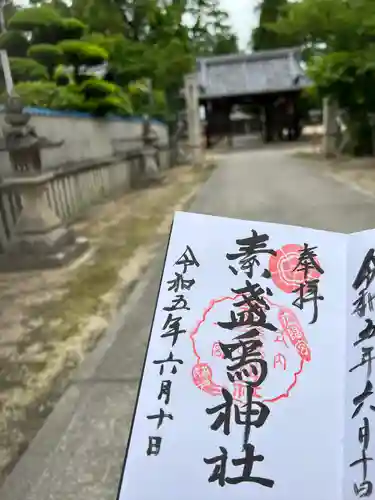 奉拝
素盞嗚神社
令和五年六月十日
令和五年六月十日